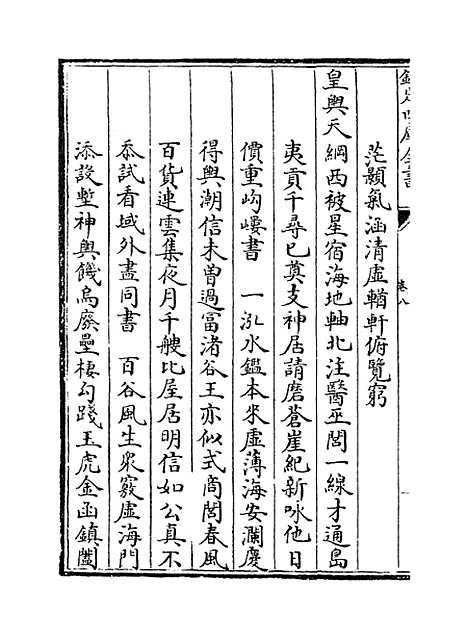 欽定四庫全書
卷八
茫顥氣涵清虛輶軒俯覽窮
皇輿天綱西被星宿海地軸北注醫巫閭一線才通島
夷貢千尋已奠支神居請磨蒼崖紀新咏他日
價重岣嶁書　一泓水鑑本來虛薄海安瀾慶
得輿潮信未曾過富渚谷王亦似式商閭春風
百貨連雲集夜月千艘比屋居明信如公真不
忝試看域外盡同書　百谷風生衆竅虛海門
添設塹神輿饑烏廢壘棲勾踐玉虎金函鎮闔